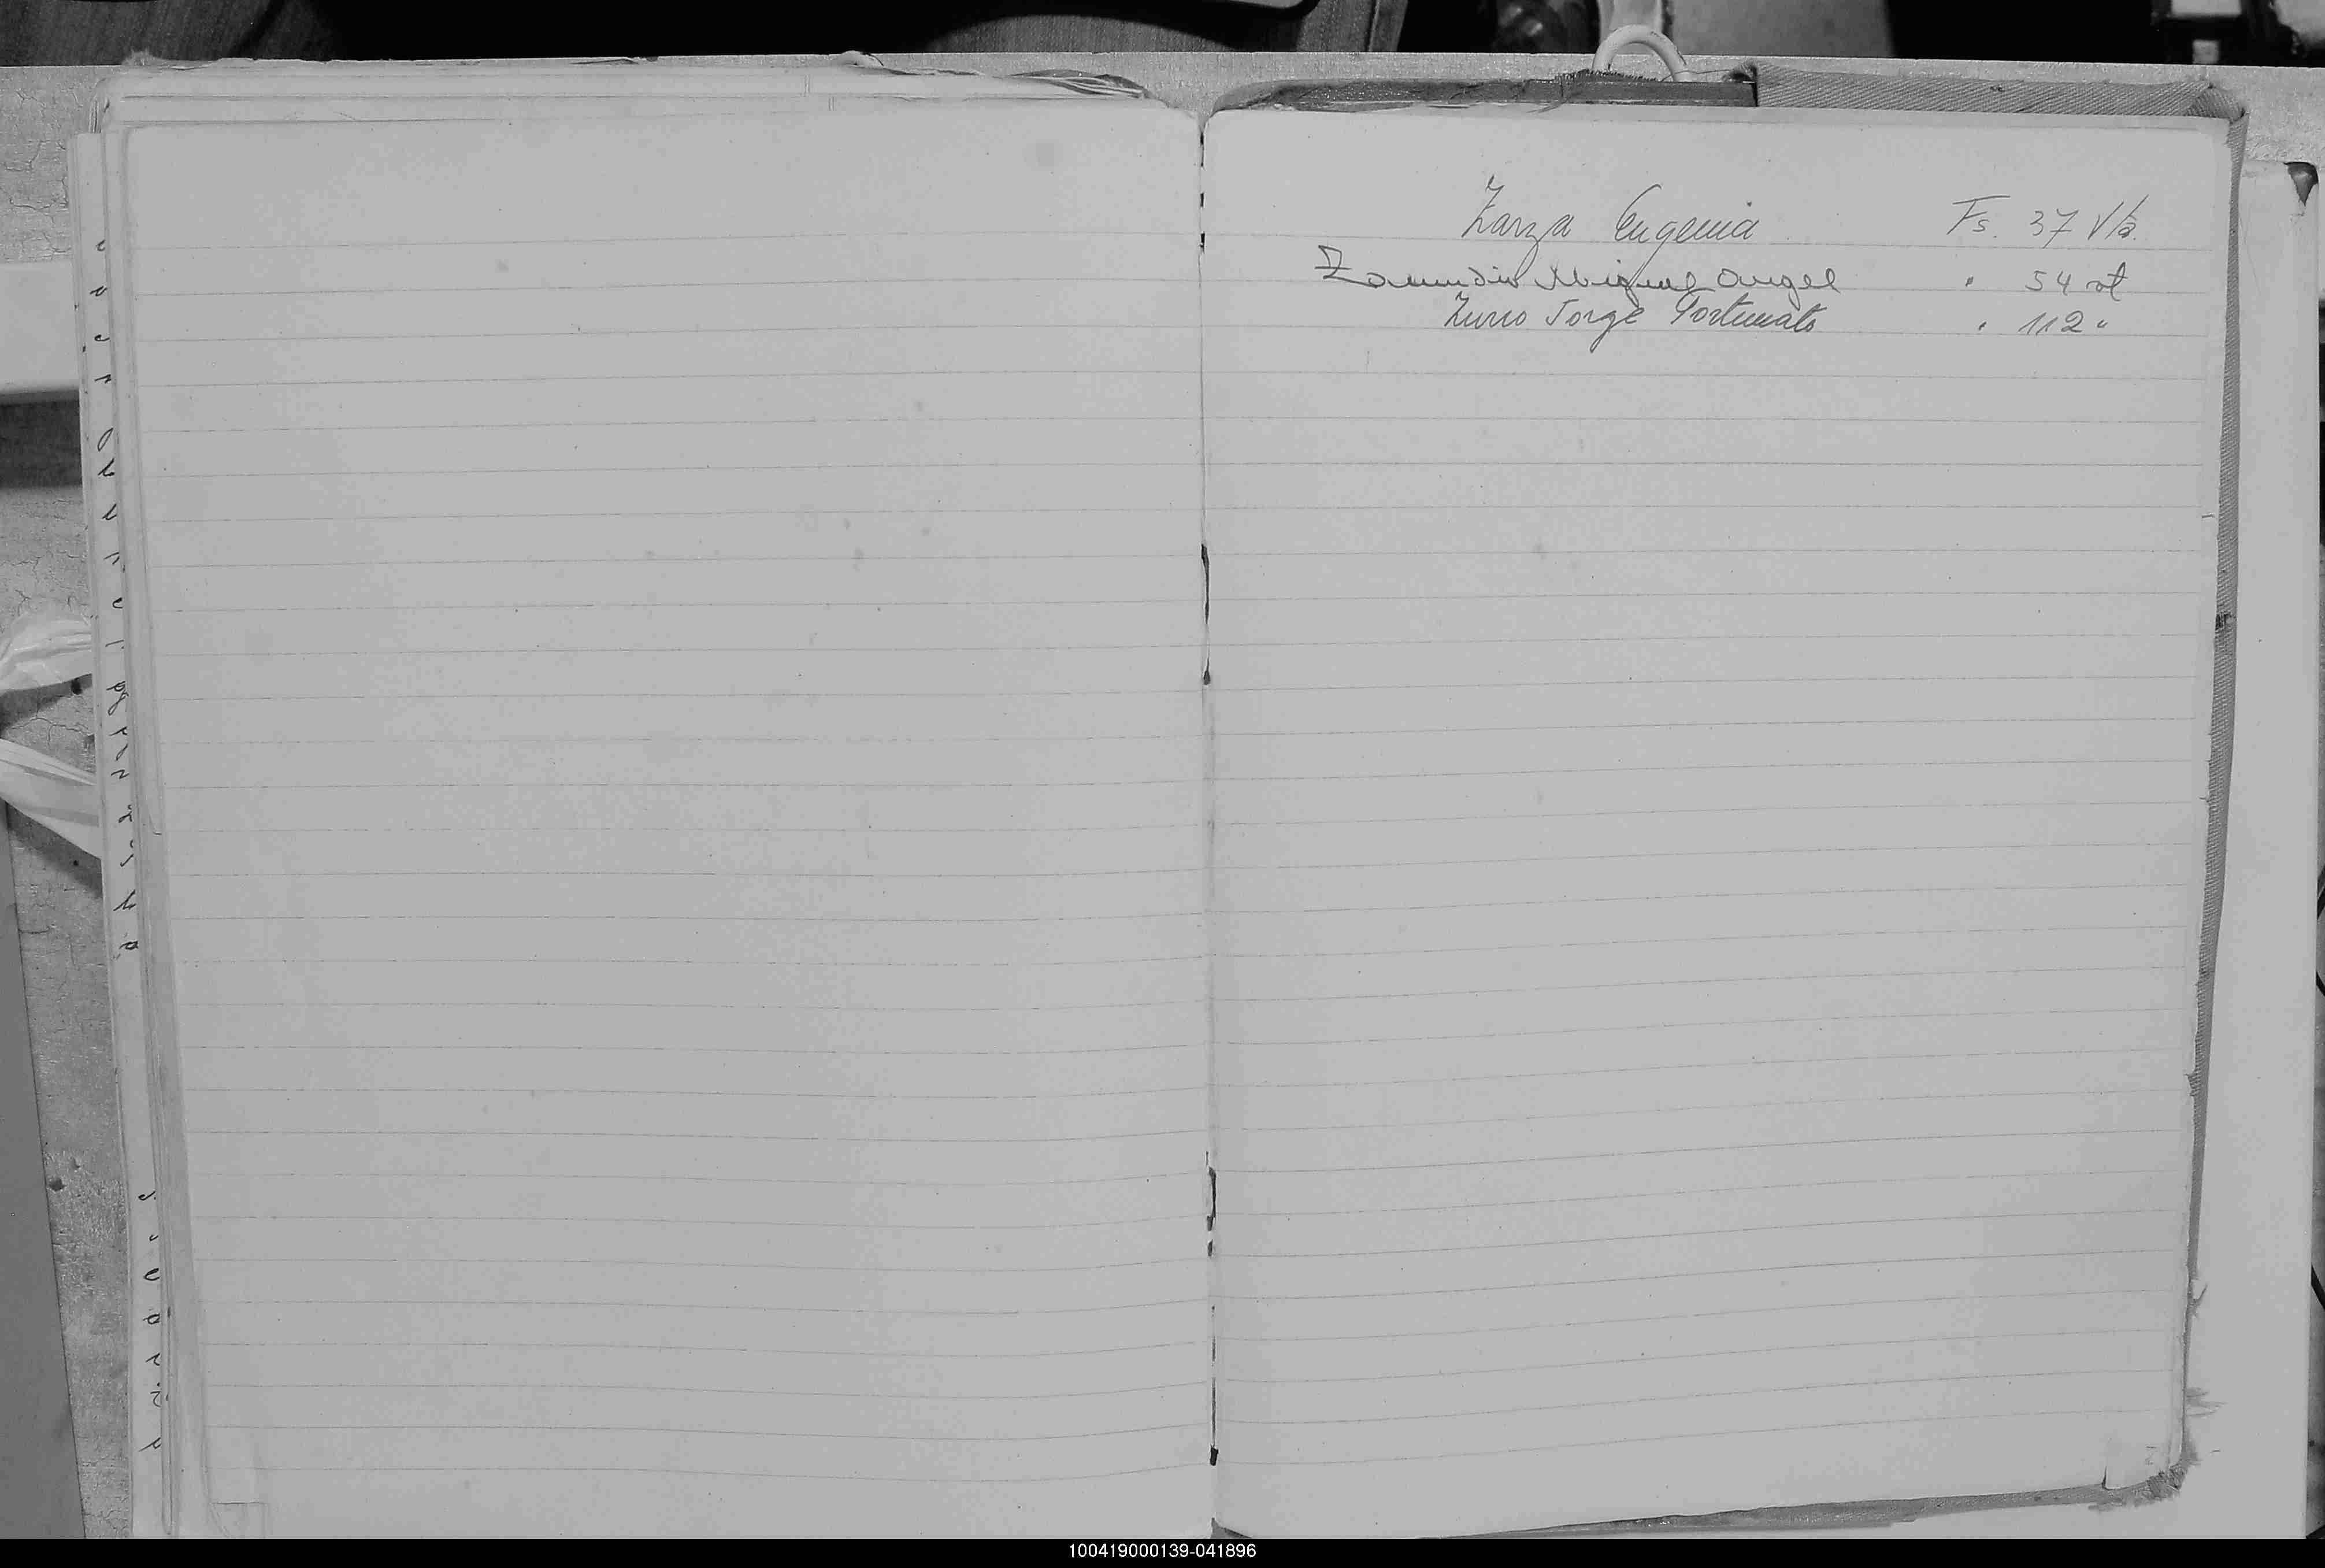 Zarza Eugenia Fs. 37 Vta.
Zamudio Miguel Angel " 54 vt
Jorge Fortunato " 112 "
Z
100419000139-041896